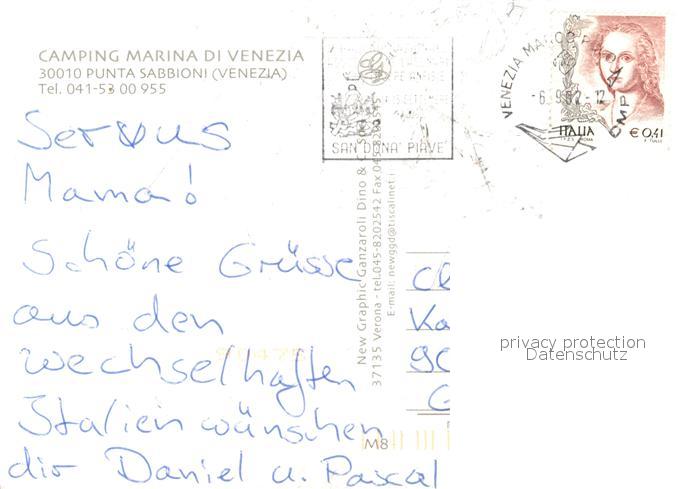 CAMPING MARINA DI VENEZIA
30010 PUNTA SABBIONI (VENEZIA)
Tel. 041-53 00 955
Servus
Mama!
Schöne Grüsse
aus den
wechselhaften
Italien wünschen
dir Daniel u. Pascal
New Graphic Ganzaroli Dino &
37135 Verona - tel.045-8202542 Fax.045-8202545
E-mail: newggd@tiscalinet.i
SAN DONA' PIAVE
VENEZIA
-6.9.02-12
ITALIA
€0,41
I.P.Z.S. ROMA
M8
privacy protection
Datenschutz